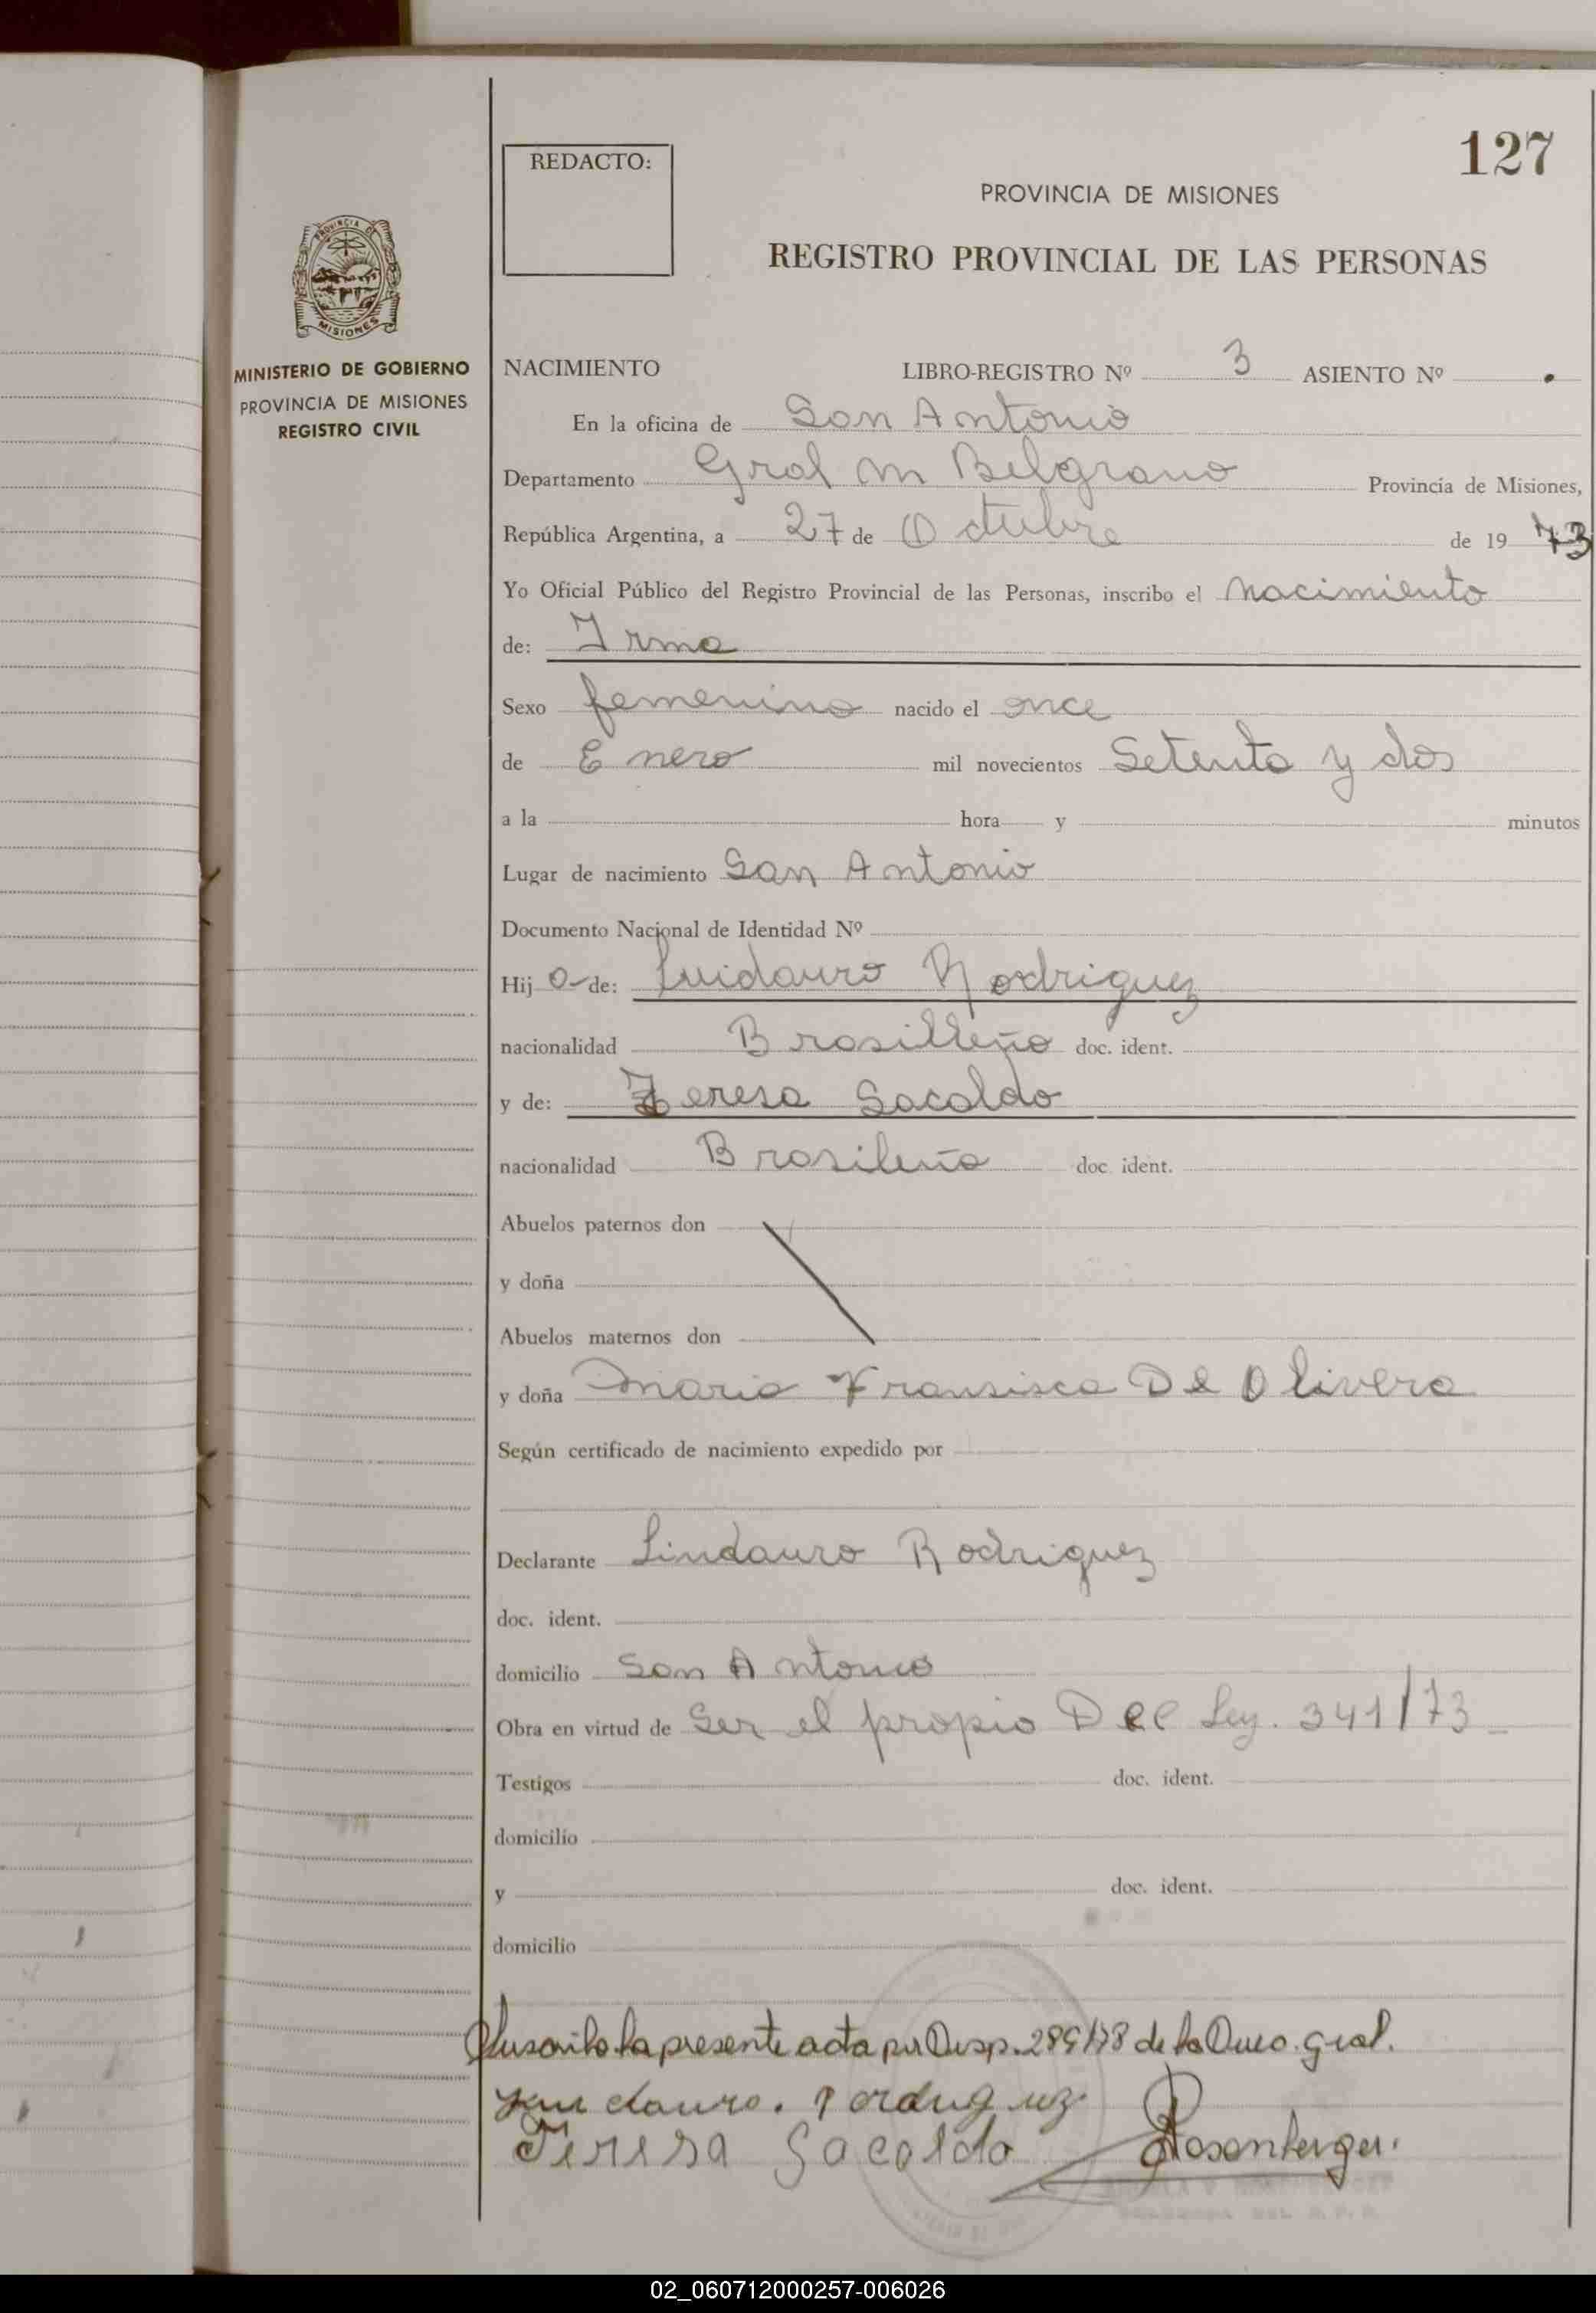 127
REDACTO:
PROVINCIA DE MISIONES
REGISTRO PROVINCIAL DE LAS PERSONAS
PROVINCIA DE
MISIONES
MINISTERIO DE GOBIERNO
PROVINCIA DE MISIONES
REGISTRO CIVIL
NACIMIENTO LIBRO-REGISTRO Nº 3 ASIENTO Nº .
En la oficina de San Antonio
Departamento Gral M Belgrano Provincia de Misiones,
República Argentina, a 27 de Octubre de 19 73
Yo Oficial Público del Registro Provincial de las Personas, inscribo el Nacimiento
de: Irma
Sexo femenino nacido el once
de Enero mil novecientos Setenta y dos
a la hora y minutos
Lugar de nacimiento San Antonio
Documento Nacional de Identidad Nº
Hij a de: Luidauro Rodriguez
nacionalidad Brasilleño doc. ident.
y de: Teresa Sacaldo
nacionalidad Brasileña doc. ident.
Abuelos paternos don
y doña
Abuelos maternos don
y doña Maria Fransisca De Olivera
Según certificado de nacimiento expedido por
Declarante Lindauro Rodriguez
doc. ident.
domicilio San Antonio
Obra en virtud de Ser el propio Dec Ley. 341/73
Testigos doc. ident.
domicilio
y doc. ident.
domicilio
la presente acta por Disp. 289/78 de la Direc. gral.
Teresa Sacaldo Rosenberger.
02_060712000257-006026